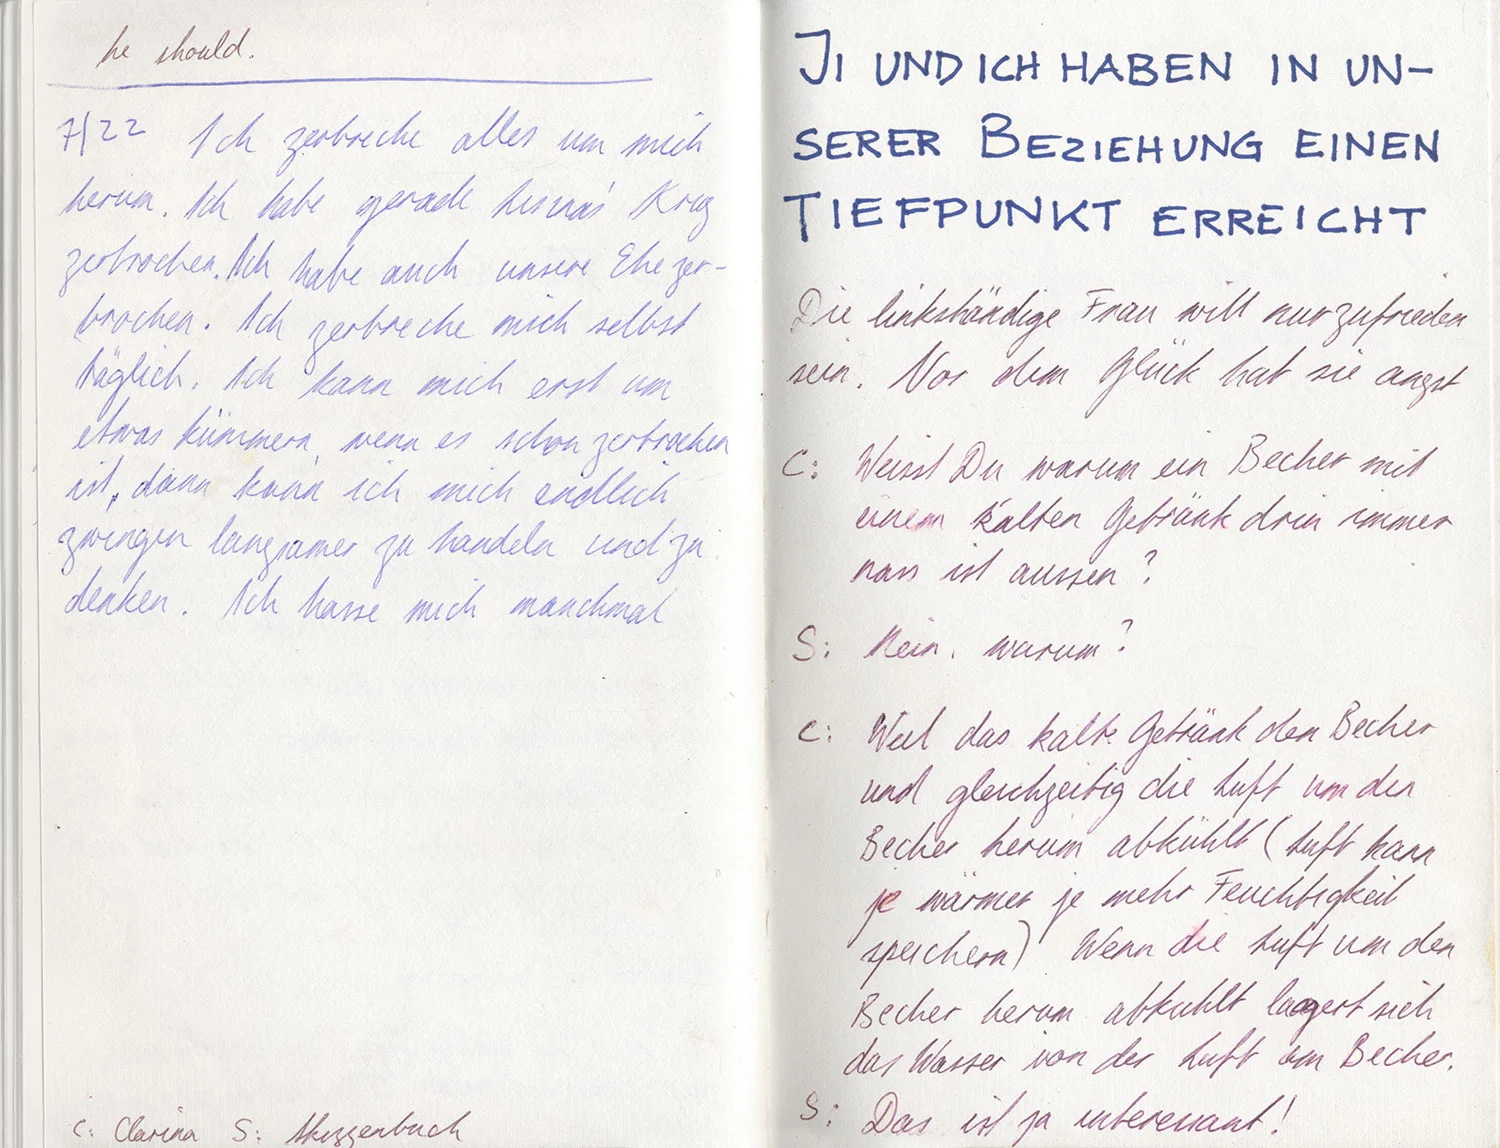 he should.
7/22 Ich zerbreche alles um mich
herum. Ich habe gerade Krug
zerbrochen. Ich habe auch unsere Ehe zer-
brochen. Ich zerbreche mich selbst
täglich. Ich kann mich erst um
etwas kümmern, wenn es schon zerbrochen
ist, dann kann ich mich endlich
zwingen langsamer zu handeln und zu
denken. Ich hasse mich manchmal
C: Clarina S: Skizzenbuch
JI UND ICH HABEN IN UN-
SERER BEZIEHUNG EINEN
TIEFPUNKT ERREICHT
Die linkshändige Frau will nur zufrieden
sein. Vor dem Glück hat sie angst
C: Weisst Du warum ein Becher mit
einem kalten Getränk drin immer
nass ist aussen?
S: Nein. warum?
C: Weil das kalte Getränk den Becher
und gleichzeitig die Luft um den
Becher herum abkühlt (Luft kann
je wärmer je mehr Feuchtigkeit
speichern) Wenn die Luft um den
Becher herum abkühlt lagert sich
das Wasser von der Luft am Becher.
S: Das ist ja interessant!